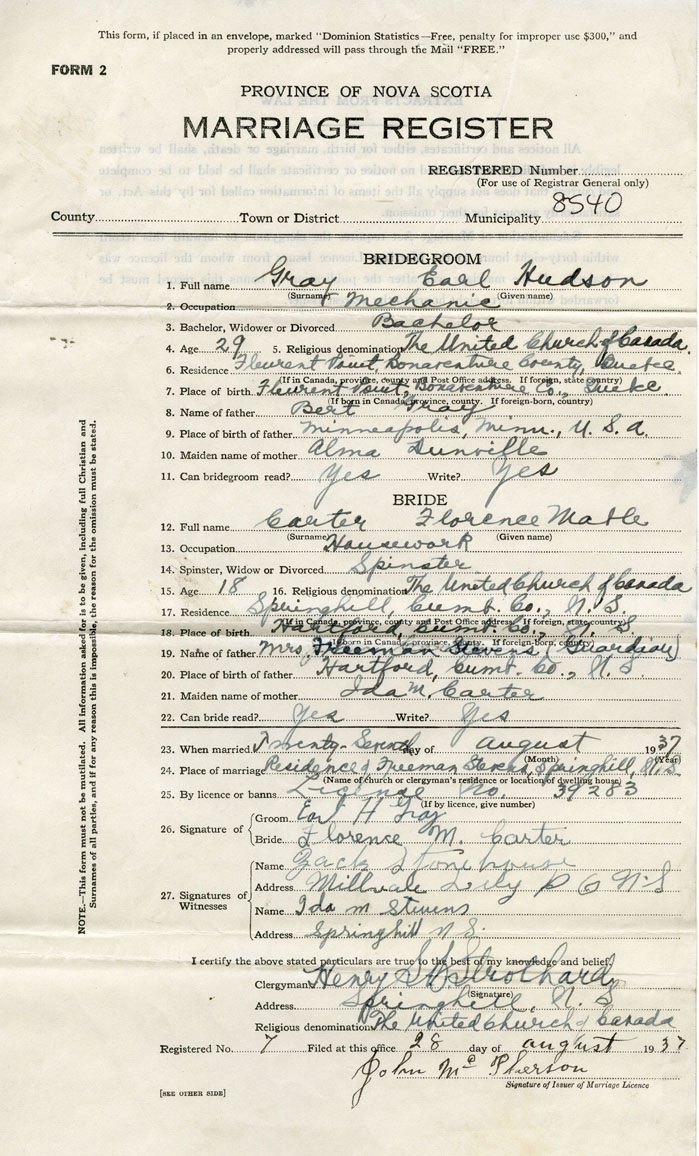 This form, if placed in an envelope, marked "Dominion Statistics—Free, penalty for improper use $300," and
properly addressed will pass through the Mail "FREE."
FORM 2
PROVINCE OF NOVA SCOTIA
MARRIAGE REGISTER
REGISTERED Number
(For use of Registrar General only)
8540
County Town or District Municipality
BRIDEGROOM
1. Full name Gray Earl Hudson
(Surname) (Given name)
2. Occupation Mechanic
3. Bachelor, Widower or Divorced Bachelor
4. Age 29 5. Religious denomination The United Church of Canada.
6. Residence Fleurent Point, Bonaventure County, Quebec.
(If in Canada, province, county and Post Office address. If foreign, state country)
7. Place of birth Fleurent Point, Bonaventure Co., Quebec
(If born in Canada, province, county. If foreign-born, country)
8. Name of father Bert Gray
9. Place of birth of father Minneapolis, Minn., U. S. A.
10. Maiden name of mother Alma Dunville
11. Can bridegroom read? Yes Write? Yes
BRIDE
12. Full name Carter Florence Mable
(Surname) (Given name)
13. Occupation Housework
14. Spinster, Widow or Divorced Spinster
15. Age 18 16. Religious denomination The United Church of Canada
17. Residence Springhill, Cumb. Co., N. S.
(If in Canada, province, county and Post Office address. If foreign, state country)
18. Place of birth Hartford, Cumb. Co., N. S
(If born in Canada, province, county. If foreign-born, country)
19. Name of father Mrs. Freeman Stevens (Guardian)
20. Place of birth of father Hartford, Cumb. Co., N. S
21. Maiden name of mother Ida M. Carter
22. Can bride read? Yes Write? Yes
23. When married Twenty-Seventh day of August 1937
(Month) (Year)
24. Place of marriage Residence of Freeman Stevens, Springhill, N. S.
(Name of church or clergyman's residence or location of dwelling house)
25. By licence or banns License No. 39283
(If by licence, give number)
26. Signature of
Groom Earl H Gray
Bride Florence M. Carter
27. Signatures of Witnesses
Name Jack Stonehouse
Address Millvale Lily P O N-S
Name Ida M Stevens
Address Springhill N S.
I certify the above stated particulars are true to the best of my knowledge and belief.
Clergyman Henry Strothard
(Signature)
Address Springhill, N. S
Religious denomination The United Church of Canada
Registered No. 7 Filed at this office 28 day of August 1937
John McPherson
Signature of Issuer of Marriage Licence
[SEE OTHER SIDE]
NOTE.—This form must not be mutilated. All information asked for is to be given, including full Christian and
Surnames of all parties, and if for any reason this is impossible, the reason for the omission must be stated.